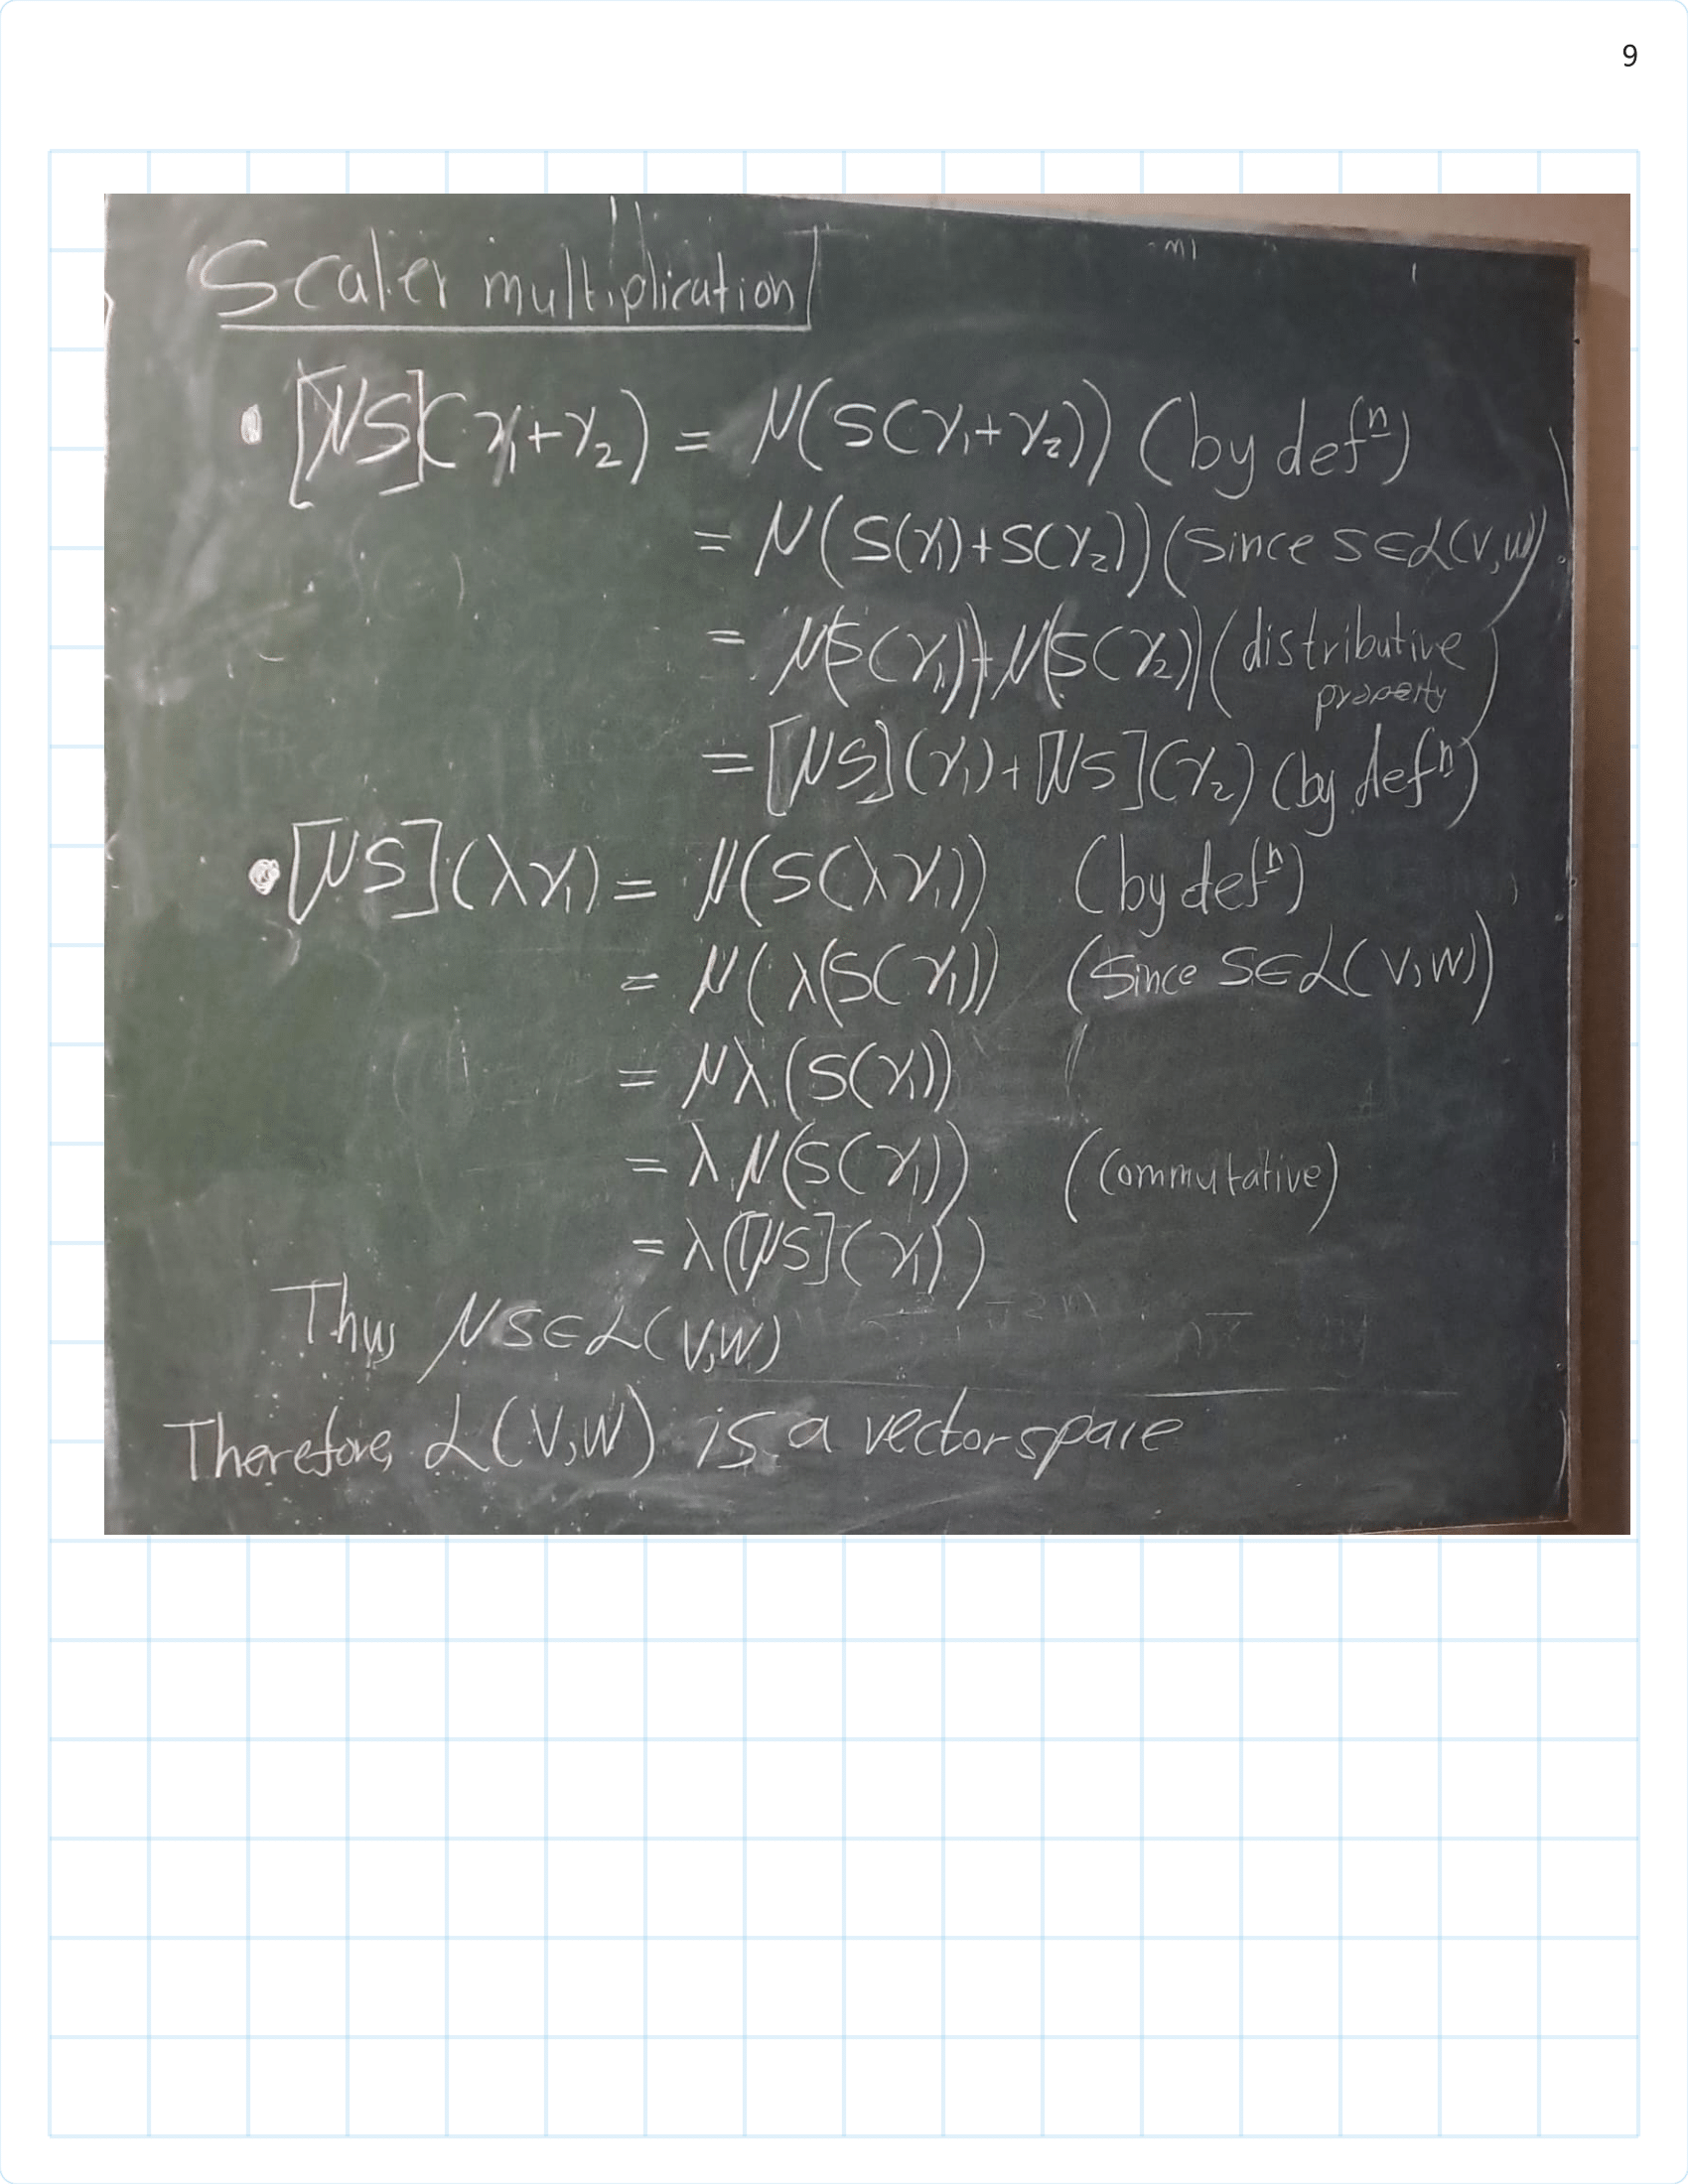 9
Scaler multiplication
• [μS](γ₁+γ₂) = μ(S(γ₁+γ₂)) (by defⁿ)
= μ(S(γ₁)+S(γ₂)) (Since S∈L(V,W))
= μ(S(γ₁))+μ(S(γ₂)) (distributive
property)
= [μS](γ₁)+[μS](γ₂) (by defⁿ)
• [μS](λγ₁) = μ(S(λγ₁)) (by defⁿ)
= μ(λ(S(γ₁)) (Since S∈L(V,W))
= μλ(S(γ₁))
= λμ(S(γ₁)) (commutative)
= λ([μS](γ₁))
Thus μS∈L(V,W)
Therefore, L(V,W) is a vector space